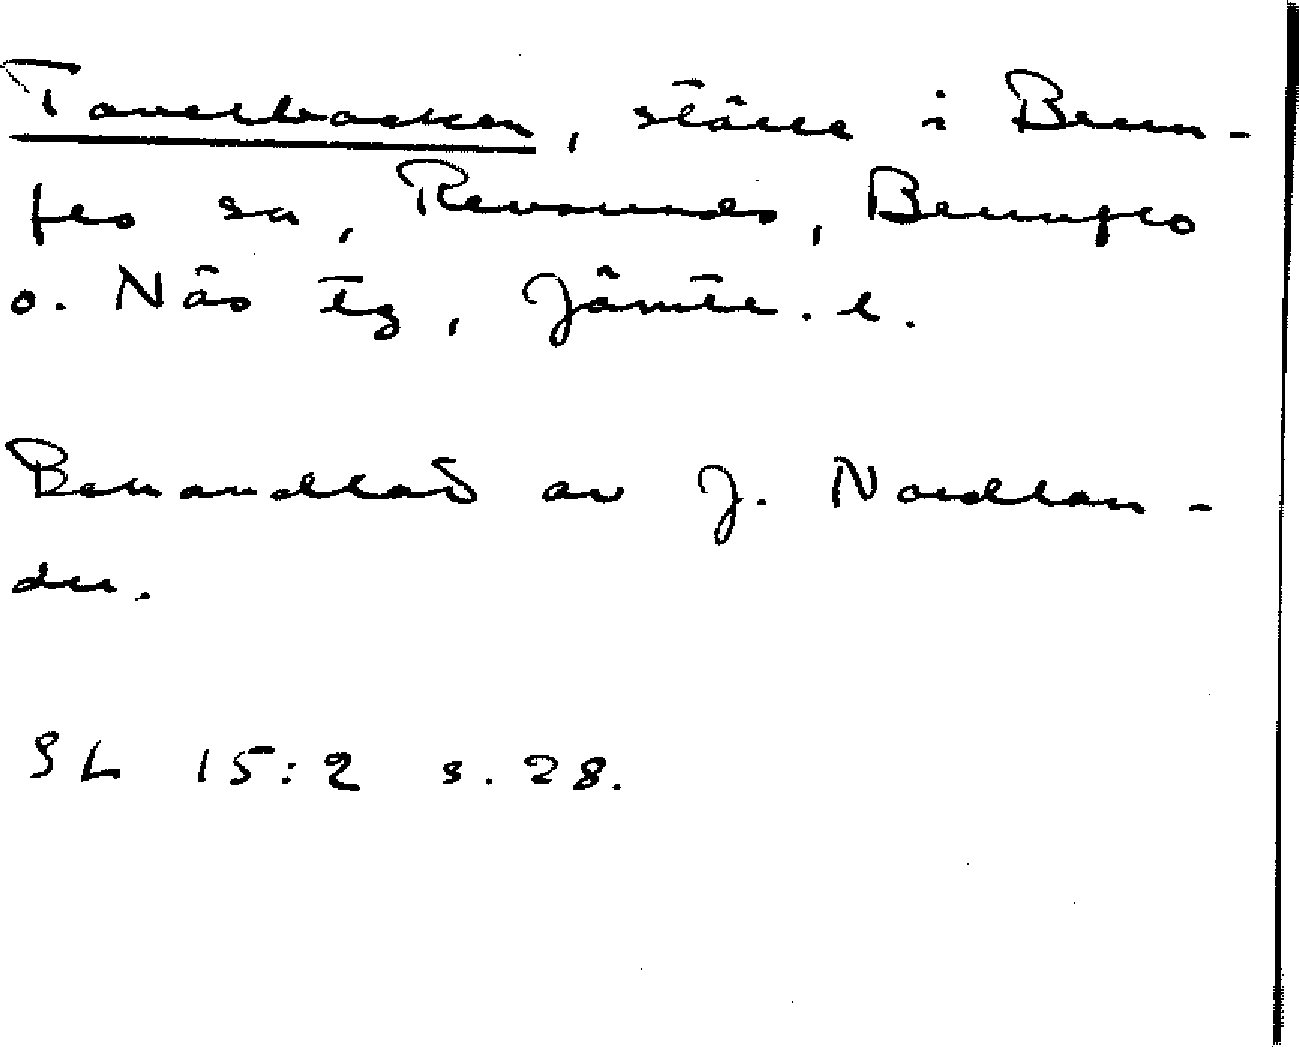 Tavelbacken, ställe i Brun-
flo sn, Revsunds, Brunflo
o. Näs tg, Jämtl. l.
Behandlat av J. Nordlan-
der.
SL 15:2 s. 28.